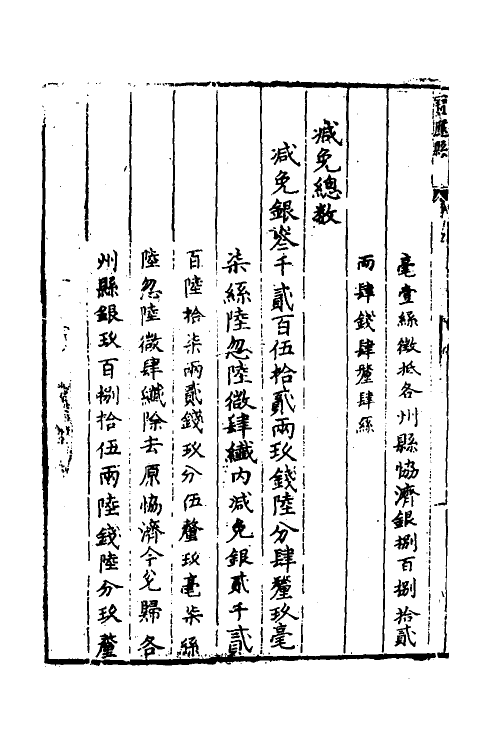 寳應縣
毫壹絲徵抵各州縣恊濟銀捌百捌拾貳
兩肆錢肆釐肆絲
减免總数
减免銀叄千貳百伍拾貳兩玖錢陸分肆釐玖毫
柒絲陸忽陸微肆纖内减免銀貳千貳
百陸拾柒兩貳錢玖分伍釐玖毫柒絲
陸忽陸微肆纖除去原恊濟今兊歸各
州縣銀玖百捌拾伍兩陸錢陸分玖釐